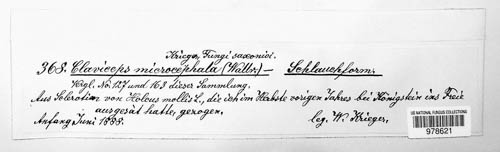 Krieger, Fungi saxonici.
368. Claviceps microcephala (Wallr.) — Schlauchform.
Vergl. No. 127 und 163 dieser Sammlung.
Aus Sclerotien von Holcus mollis L., die ich im Herbste vorigen Jahres bei Königstein ins Freie
ausgesät hatte, gezogen.
Anfang Juni 1888. leg. W. Krieger.
US NATIONAL FUNGUS COLLECTIONS
978621